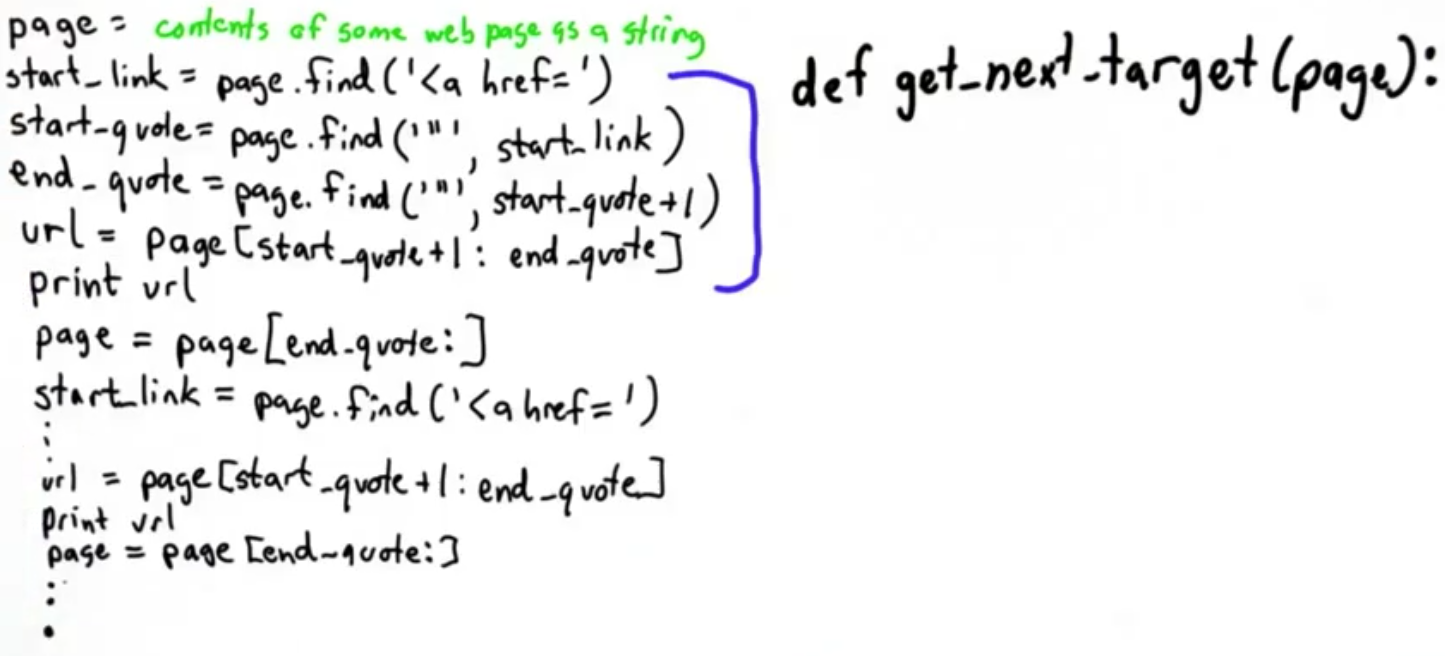 page = contents of some web page as a string
start_link = page.find('<a href=')
start_quote = page.find('"', start_link)
end_quote = page.find('"', start_quote+1)
url = page[start_quote+1: end_quote]
print url
page = page[end_quote:]
start_link = page.find('<a href=')
⋮
url = page[start_quote+1: end_quote]
print url
page = page[end_quote:]
⋮
def get_next_target(page):